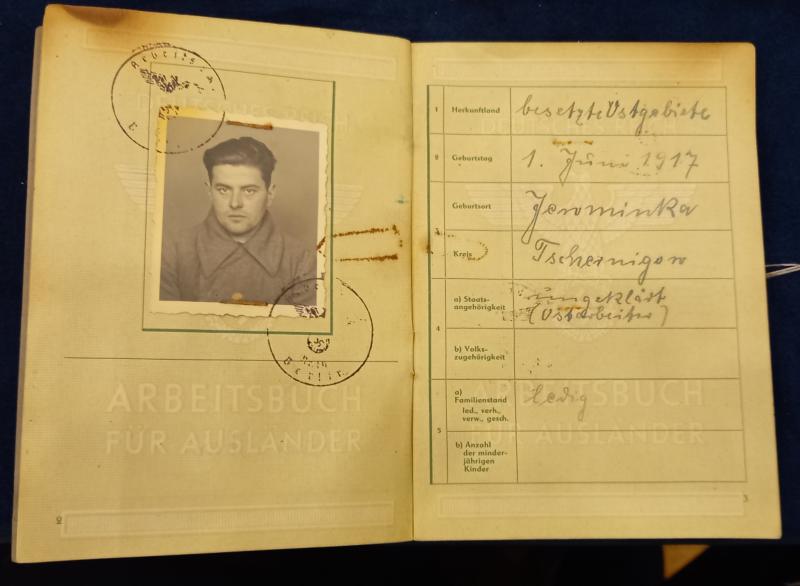 Arbeits
Berlin
DEUTSCHES REICH
ARBEITSBUCH
FÜR AUSLÄNDER
1 Herkunftland besetzte Ostgebiete
2 Geburtstag 1. Juni 1917
Geburtsort Jerominka
3
Kreis Tschernigow
a) Staats-
angehörigkeit
ungeklärt
(Ostarbeiter)
4
b) Volks-
zugehörigkeit
a)
Familienstand
led., verh.,
verw., gesch.
ledig
5
b) Anzahl
der minder-
jährigen
Kinder
ARBEITSBUCH
FÜR AUSLÄNDER
3